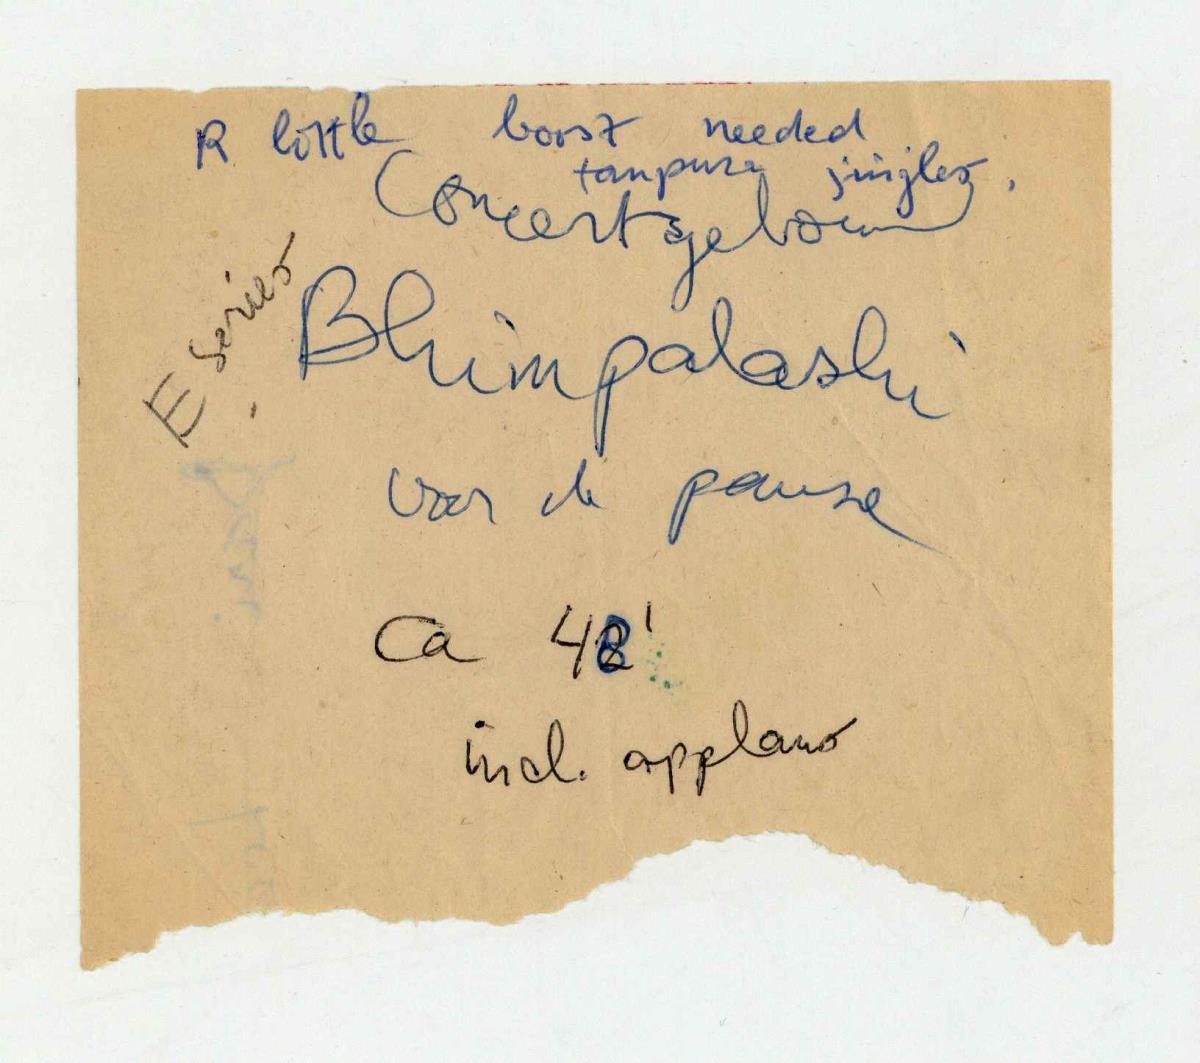 R little boost needed
tanpura jingles.
Concertgebouw
E series
Bhimpalashi
voor de pauze
Ca 48'
incl. applaus